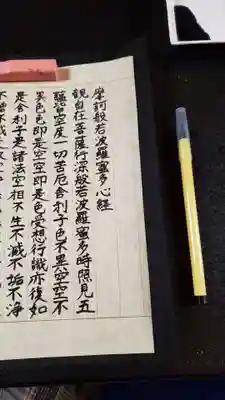 摩訶般若波羅蜜多心経
観自在菩薩行深般若波羅蜜多時照見五
蘊皆空度一切苦厄舎利子色不異空空不
異色色即是空空即是色受想行識亦復如
是舎利子是諸法空相不生不滅不垢不浄